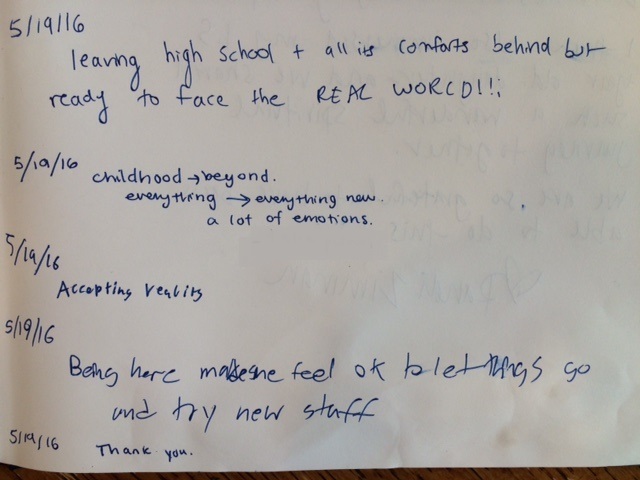 5/19/16
leaving high school + all its comforts behind but
ready to face the REAL WORLD!!¡
5/19/16
childhood → beyond.
everything → everything new.
a lot of emotions.
5/19/16
Accepting reality
5/19/16
Being here makes me feel ok to let things go
and try new stuff
5/19/16
Thank you.